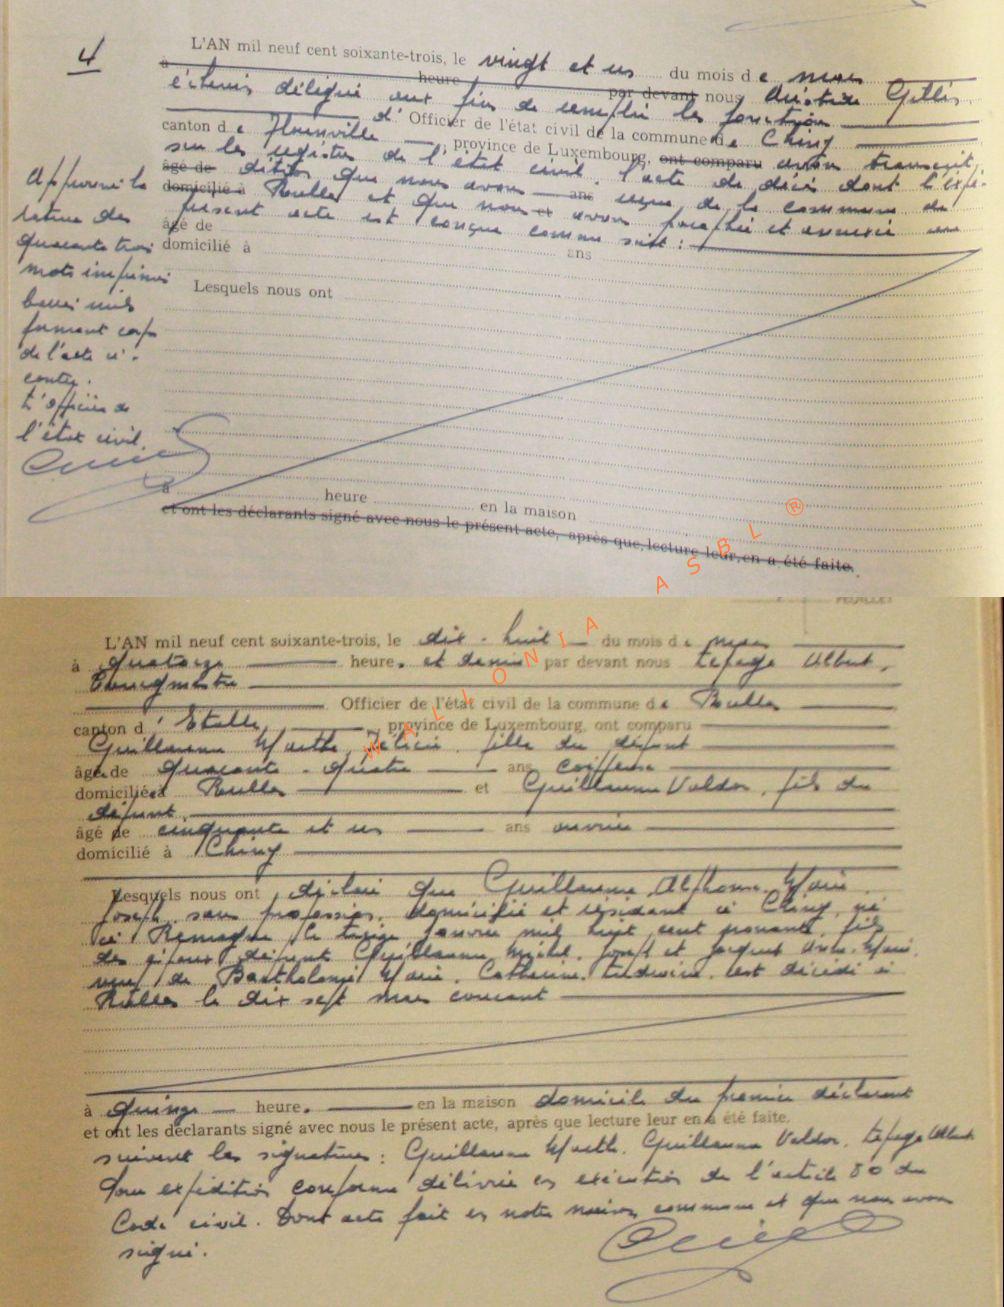 4
L'AN mil neuf cent soixante-trois, le vingt et un du mois de mars
à heure par devant nous Aristide Gillis,
échevin délégué aux fins de remplir les fonctions
d' Officier de l'état civil de la commune de Chiny
canton de Florenville, province de Luxembourg, ont comparu avons transcrit,
sur les registres de l'état civil. l'acte de décès dont l'expé-
âgé de dition que nous avons ans reçue de la commune de
domicilié à Rulles et que nous et avons paraphée et annexée au
présent acte est conçue comme suit :
âgé de ans
domicilié à
Lesquels nous ont
Approuvé la
rature des
quarante trois
mots imprimés
barrés mais
formant corps
de l'acte ci-
contre.
L'officier de
l'état civil.
à heure en la maison
et ont les déclarants signé avec nous le présent acte, après que lecture leur en a été faite.
WALLONIA ASBL ®
FEUILLET
L'AN mil neuf cent soixante-trois, le dix-huit du mois de mars
à quatorze heure. et demie par devant nous Lepage Albert,
Bourgmestre
Officier de l'état civil de la commune de Rulles
canton d' Etalle, province de Luxembourg, ont comparu
Guillaume Marthe, Félicie, fille du défunt
âgé de quarante-quatre ans coiffeuse
domicilié à Rulles et Guillaume Valdor, fils du
défunt,
âgé de cinquante et un ans ouvrier
domicilié à Chiny
Lesquels nous ont déclaré que Guillaume Alphonse Marie
Joseph, sans profession, domicilié et résidant à Chiny, né
à Remagne le treize janvier mil huit cent nonante, fils
des époux défunt Guillaume, Michel, Joseph et Jacquet Anne-Marie,
veuf de Bartholomé Marie, Catherine, Ludwine, est décédé à
Rulles le dix sept mars courant
à quinze heure. en la maison domicile du premier déclarant
et ont les déclarants signé avec nous le présent acte, après que lecture leur en a été faite.
suivent les signatures : Guillaume Marthe, Guillaume Valdor, Lepage Albert
Pour expédition conforme délivrée en exécution de l'article 80 du
Code civil. Dont acte fait en notre maison commune et que nous avons
signé.